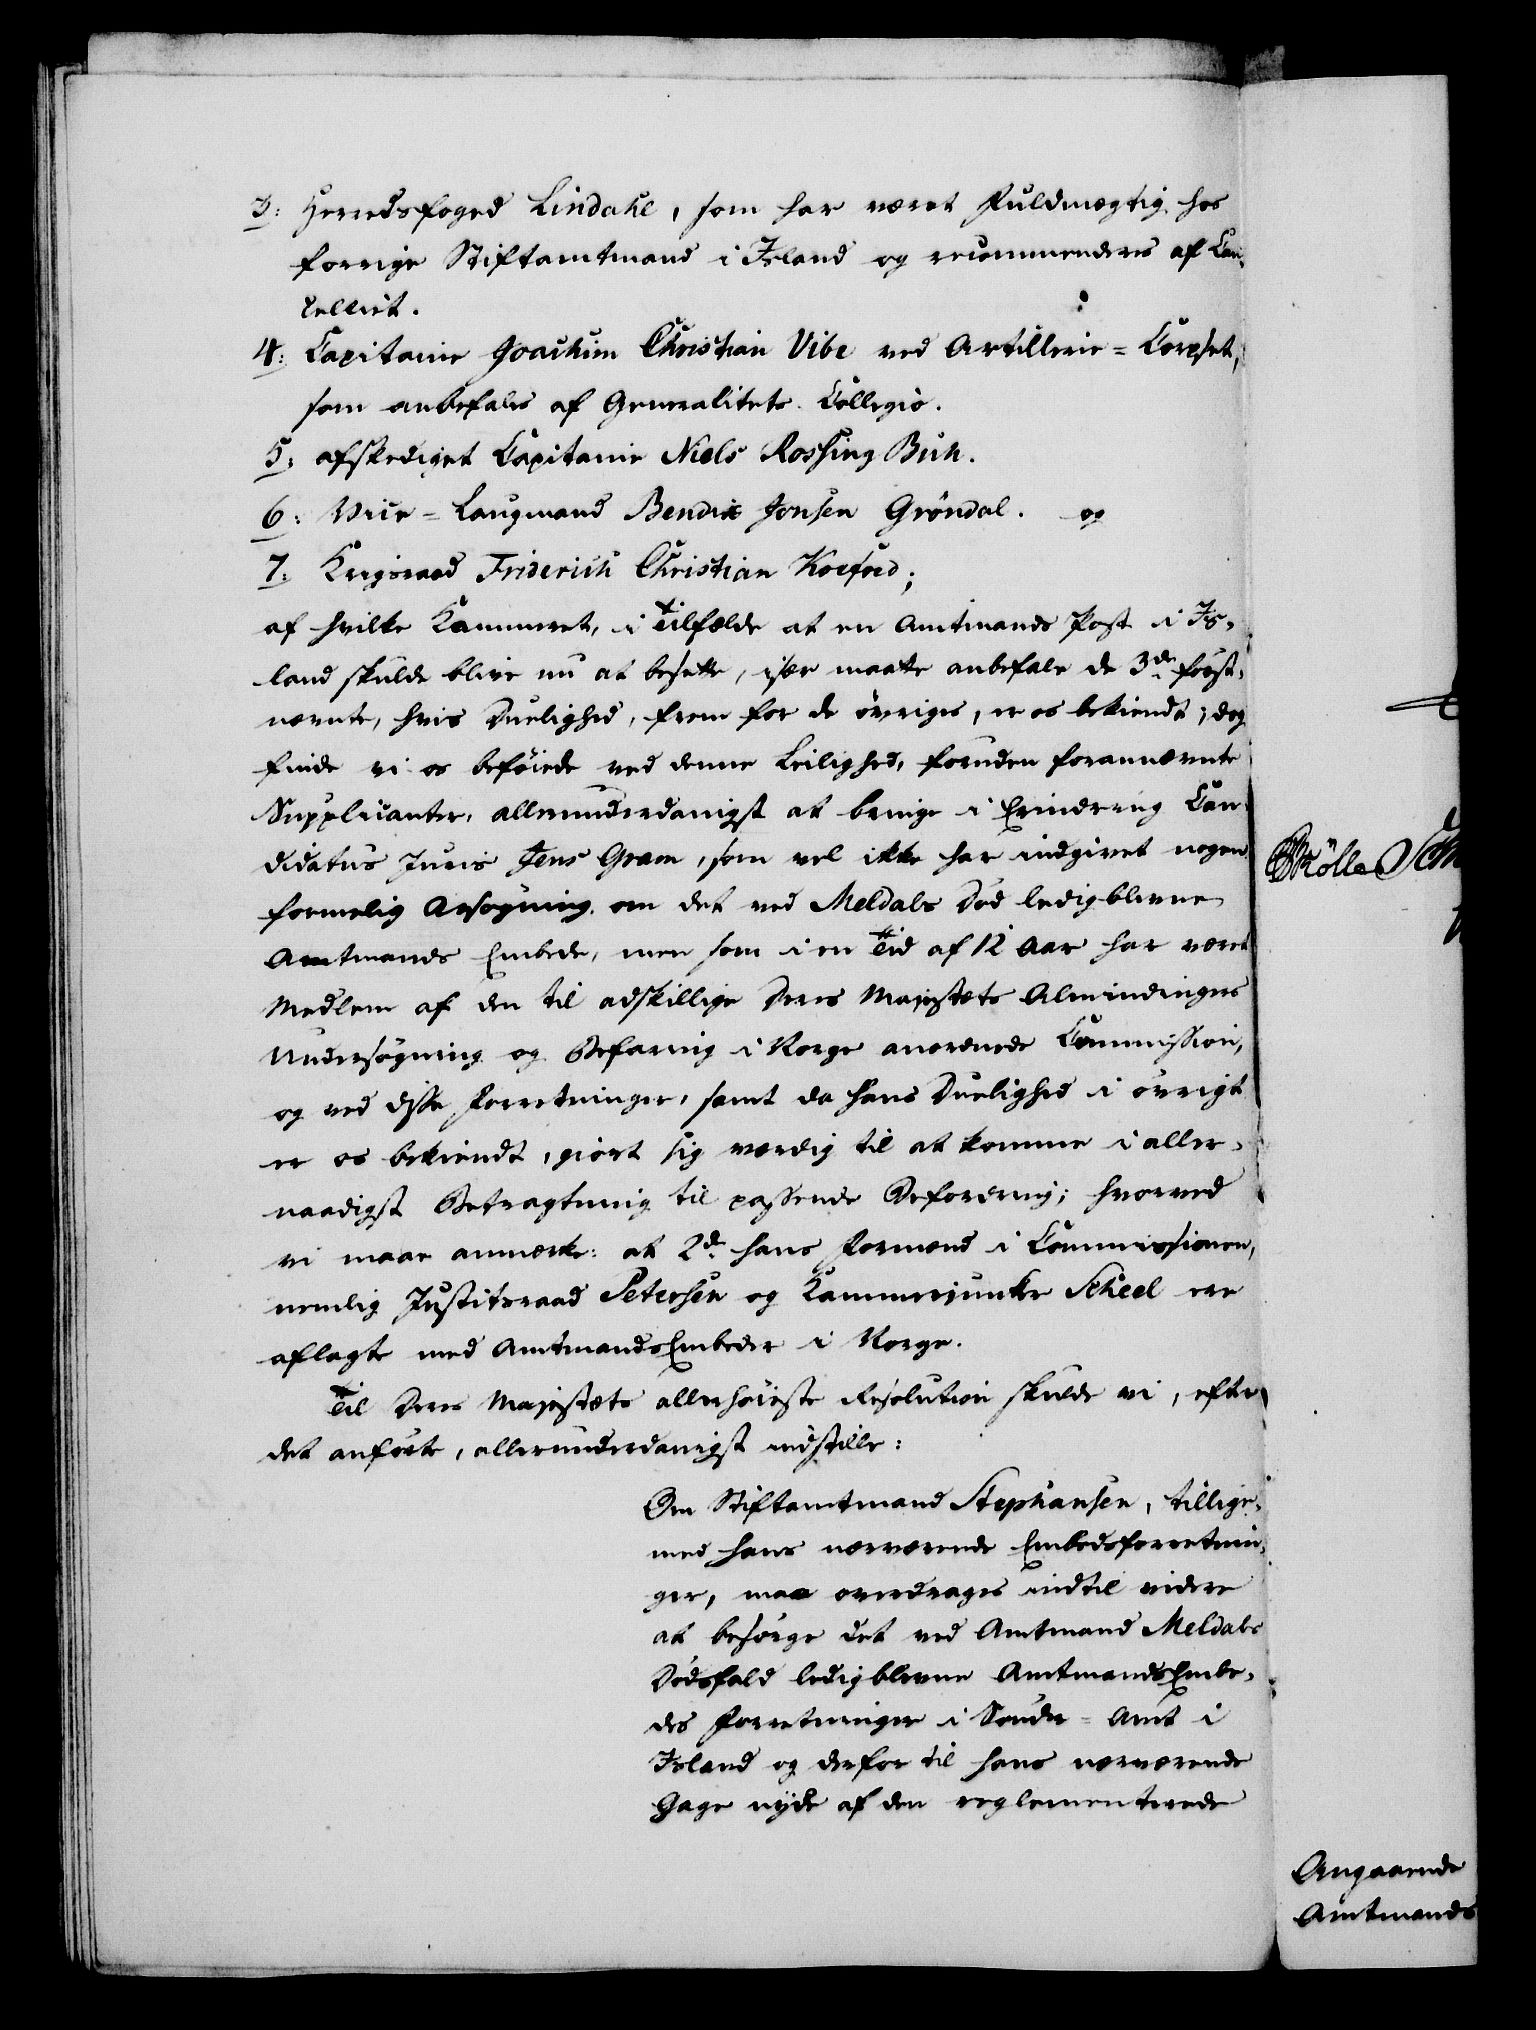 3: Herredsfoged Lindahl, som har været Fuldmægtig hos
forrige Stiftamtmand i Island og recommenderes af Can-
celliet.
4: Capitaine Joachim Christian Vibe ved Artillerie=Corpset,
som anbefales af Generalitets-Collegio.
5: afskediget Capitaine Niels Rossing Buch.
6: Vice=Laugmand Bendix Jonsen Gröndal. og
7: Krigsraad Friderich Christian Koefoed;
af hvilke Kammeret, i Tilfælde at en Amtmands Post i Is-
land skulde blive nu at besette, især maatte anbefale de 3de först-
nævnte, hvis Duelighed, frem for de övriges, er os bekiendt; dog
finde vi os beföiede ved denne Leilighed, foruden forannævnte
Supplicanter, allerunderdanigst at bringe i Erindring Can-
didatus Juris Jens Gram, som vel ikke har indgivet nogen
formelig Ansögning om det ved Meldals Död ledigblevne
Amtmands Embede, men som i en Tid af 12 Aar har været
Medlem af den til adskillige Deres Majestæts Almindingers
Undersögning og Befaring i Norge anordnede Commission,
og ved disse Forretninger, samt da hans Duelighed i övrigt
er os bekiendt, giort sig værdig til at komme i aller-
naadigst Betragtning til passende Befordring; hvorved
vi maae anmærke: at 2de hans Formænd i Commissionen,
nemlig Justitsraad Petersen og Kammerjunker Scheel ere
aflagte med AmtmandsEmbeder i Norge.
Til Deres Majestæts allerhöieste Resolution skulde vi, efter
det anförte, allerunderdanigst indstille:
Om Stiftamtmand Stephansen, tillige-
med hans nærværende Embedsforretnin-
ger, maa overdrages indtil videre
at besörge det ved Amtmand Meldals
Dödsfald ledigblevne AmtmandsEmbe-
des Forretninger i Sönder=Amt i
Island og derfor til hans nærværende
Gage nyde af den reglementerede
Angaaende
Amtmands